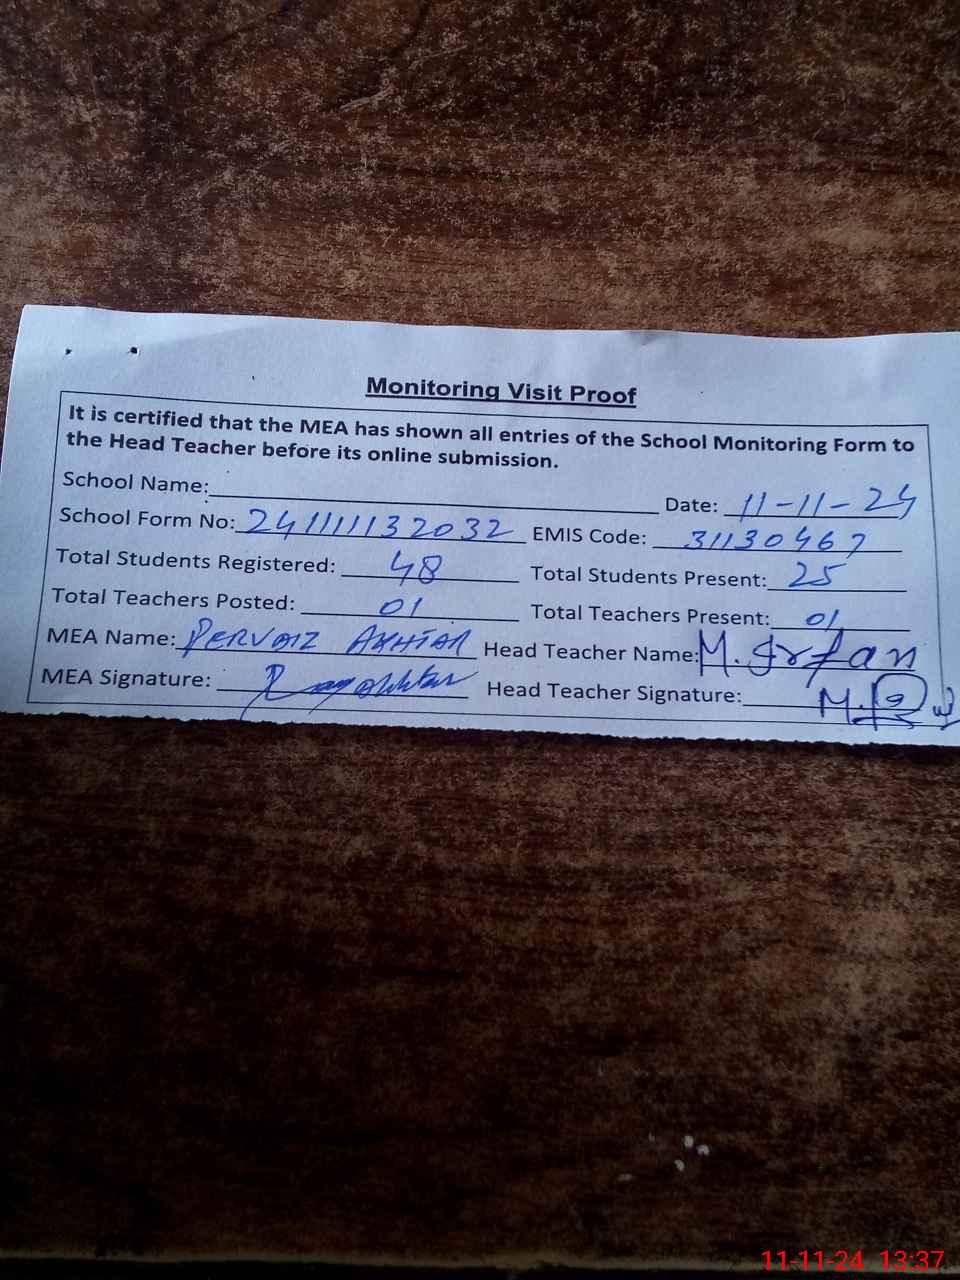 Monitoring Visit Proof
It is certified that the MEA has shown all entries of the School Monitoring Form to
the Head Teacher before its online submission.
School Name: Date: 11-11-24
School Form No: 241111132032 EMIS Code: 31130467
Total Students Registered: 48 Total Students Present: 25
Total Teachers Posted: 01 Total Teachers Present: 01
MEA Name: PERVAIZ AKHTAR Head Teacher Name: M. Irfan
MEA Signature: Head Teacher Signature:
11-11-24 13:37